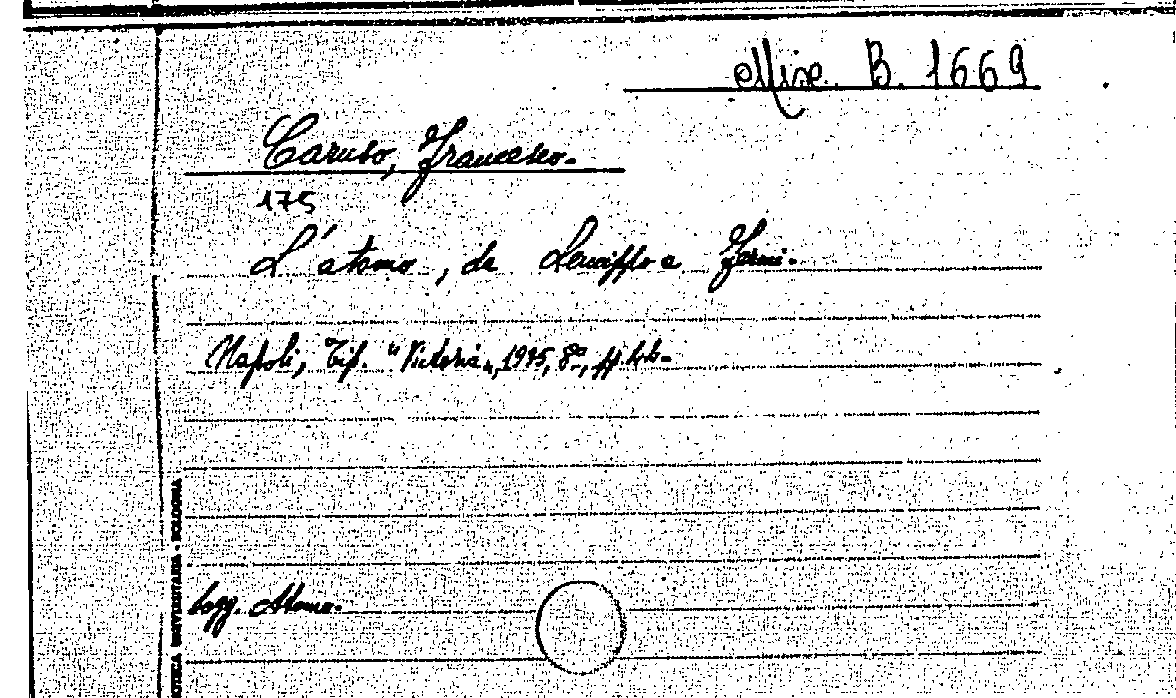 Misc. B. 1669
Caruso, Francesco.
175
L'atomo, da Leucippo a Fermi.
Napoli, Tip. "Victoria", 1945, 8º, pp. 44.
Sogg. Atomo.
OTECA UNIVERSITARIA - BOLOGNA